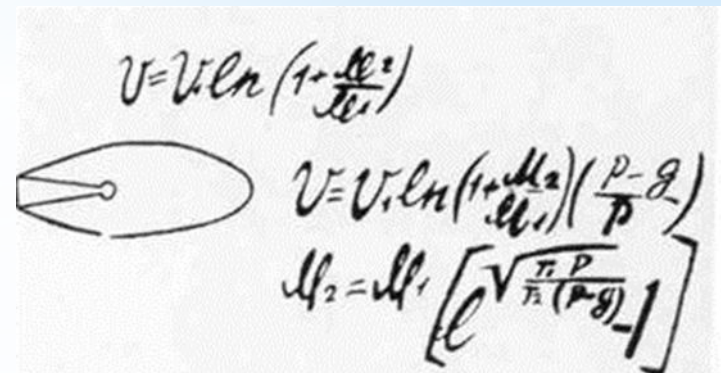 V=V₁ln(1+M₂/M₁)
V=V₁ln(1+M₂/M₁)(p-g/p)
M₂=M₁[e^√(T₁p/T₂(p-g))-1]